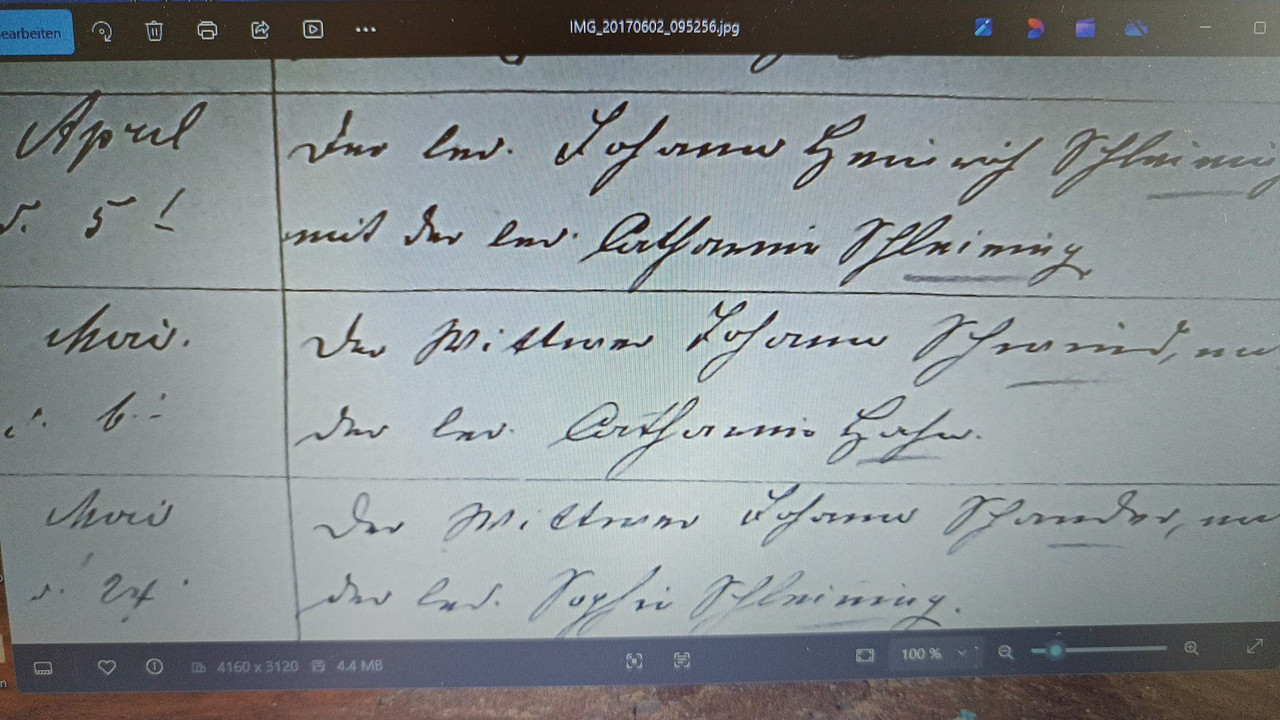 earbeiten
IMG_20170602_095256.jpg
April
d. 5!
Der led. Johann Heinrich Schleining
mit der led. Catharine Schleining
Mai.
d. 6.
Der Wittwer Johann Schmied,
der led. Catharine Hahn.
Mai
d. 24.
Der Wittwer Johann Schander,
der led. Sophie Schleining.
4160 x 3120
4.4 MB
100 %